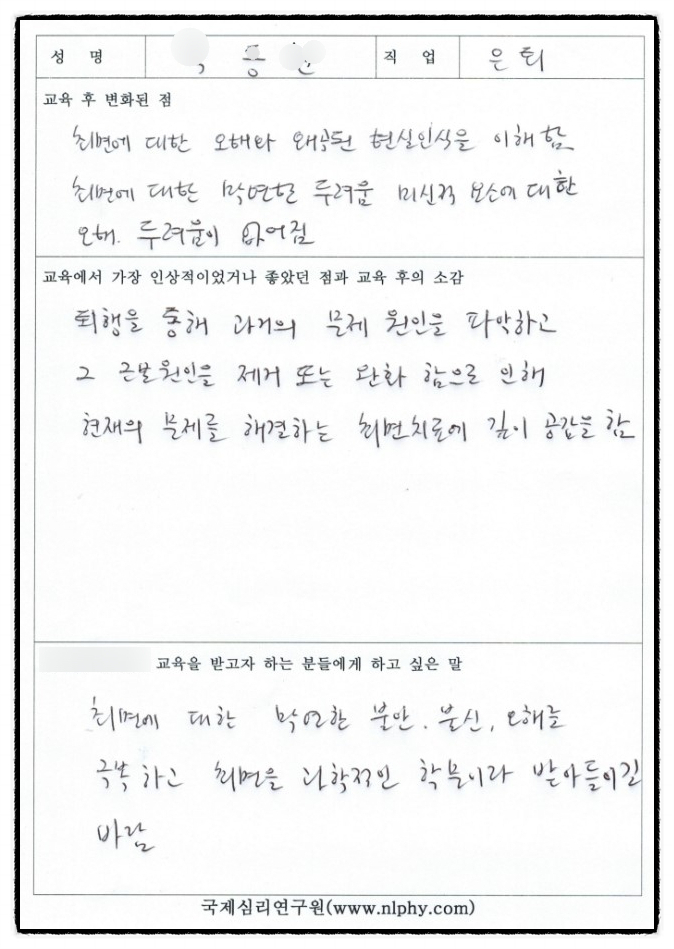 성 명 직 업 은퇴
교육 후 변화된 점
최면에 대한 오해와 왜곡된 현실인식을 이해함
최면에 대한 막연한 두려움 미신적 요소에 대한
오해. 두려움이 없어짐
교육에서 가장 인상적이었거나 좋았던 점과 교육 후의 소감
퇴행을 통해 과거의 문제 원인을 파악하고
그 근본원인을 제거 또는 완화 함으로 인해
현재의 문제를 해결하는 최면치료에 깊이 공감을 함
교육을 받고자 하는 분들에게 하고 싶은 말
최면에 대한 막연한 불안. 불신, 오해를
극복하고 최면을 과학적인 학문이라 받아들이길
바람
국제심리연구원(www.nlphy.com)